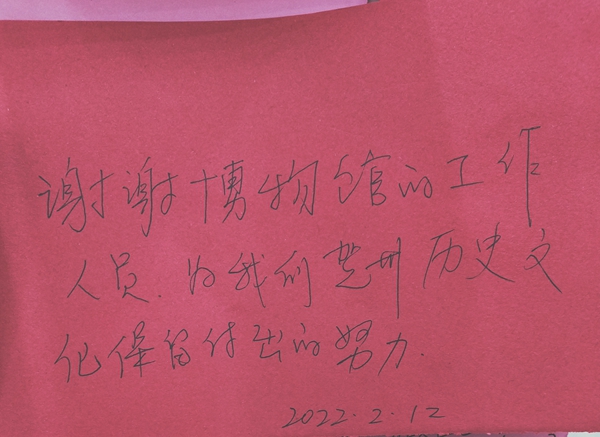 谢谢博物馆的工作
人员.为我们楚州历史文
化保留付出的努力.
2022.2.12